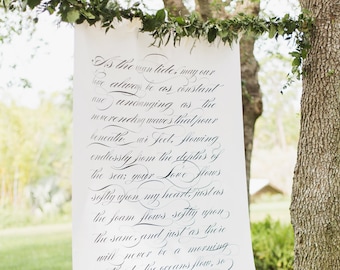 As the moon tide, may our
love always be as constant
and unchanging as the
neverending waves that pour
beneath our feet, flowing
endlessly from the depths of
the sea; your Love flows
softly upon my heart, just as
the foam flows softly upon
the sand, and just as there
will never be a morning
the oceans flow, so